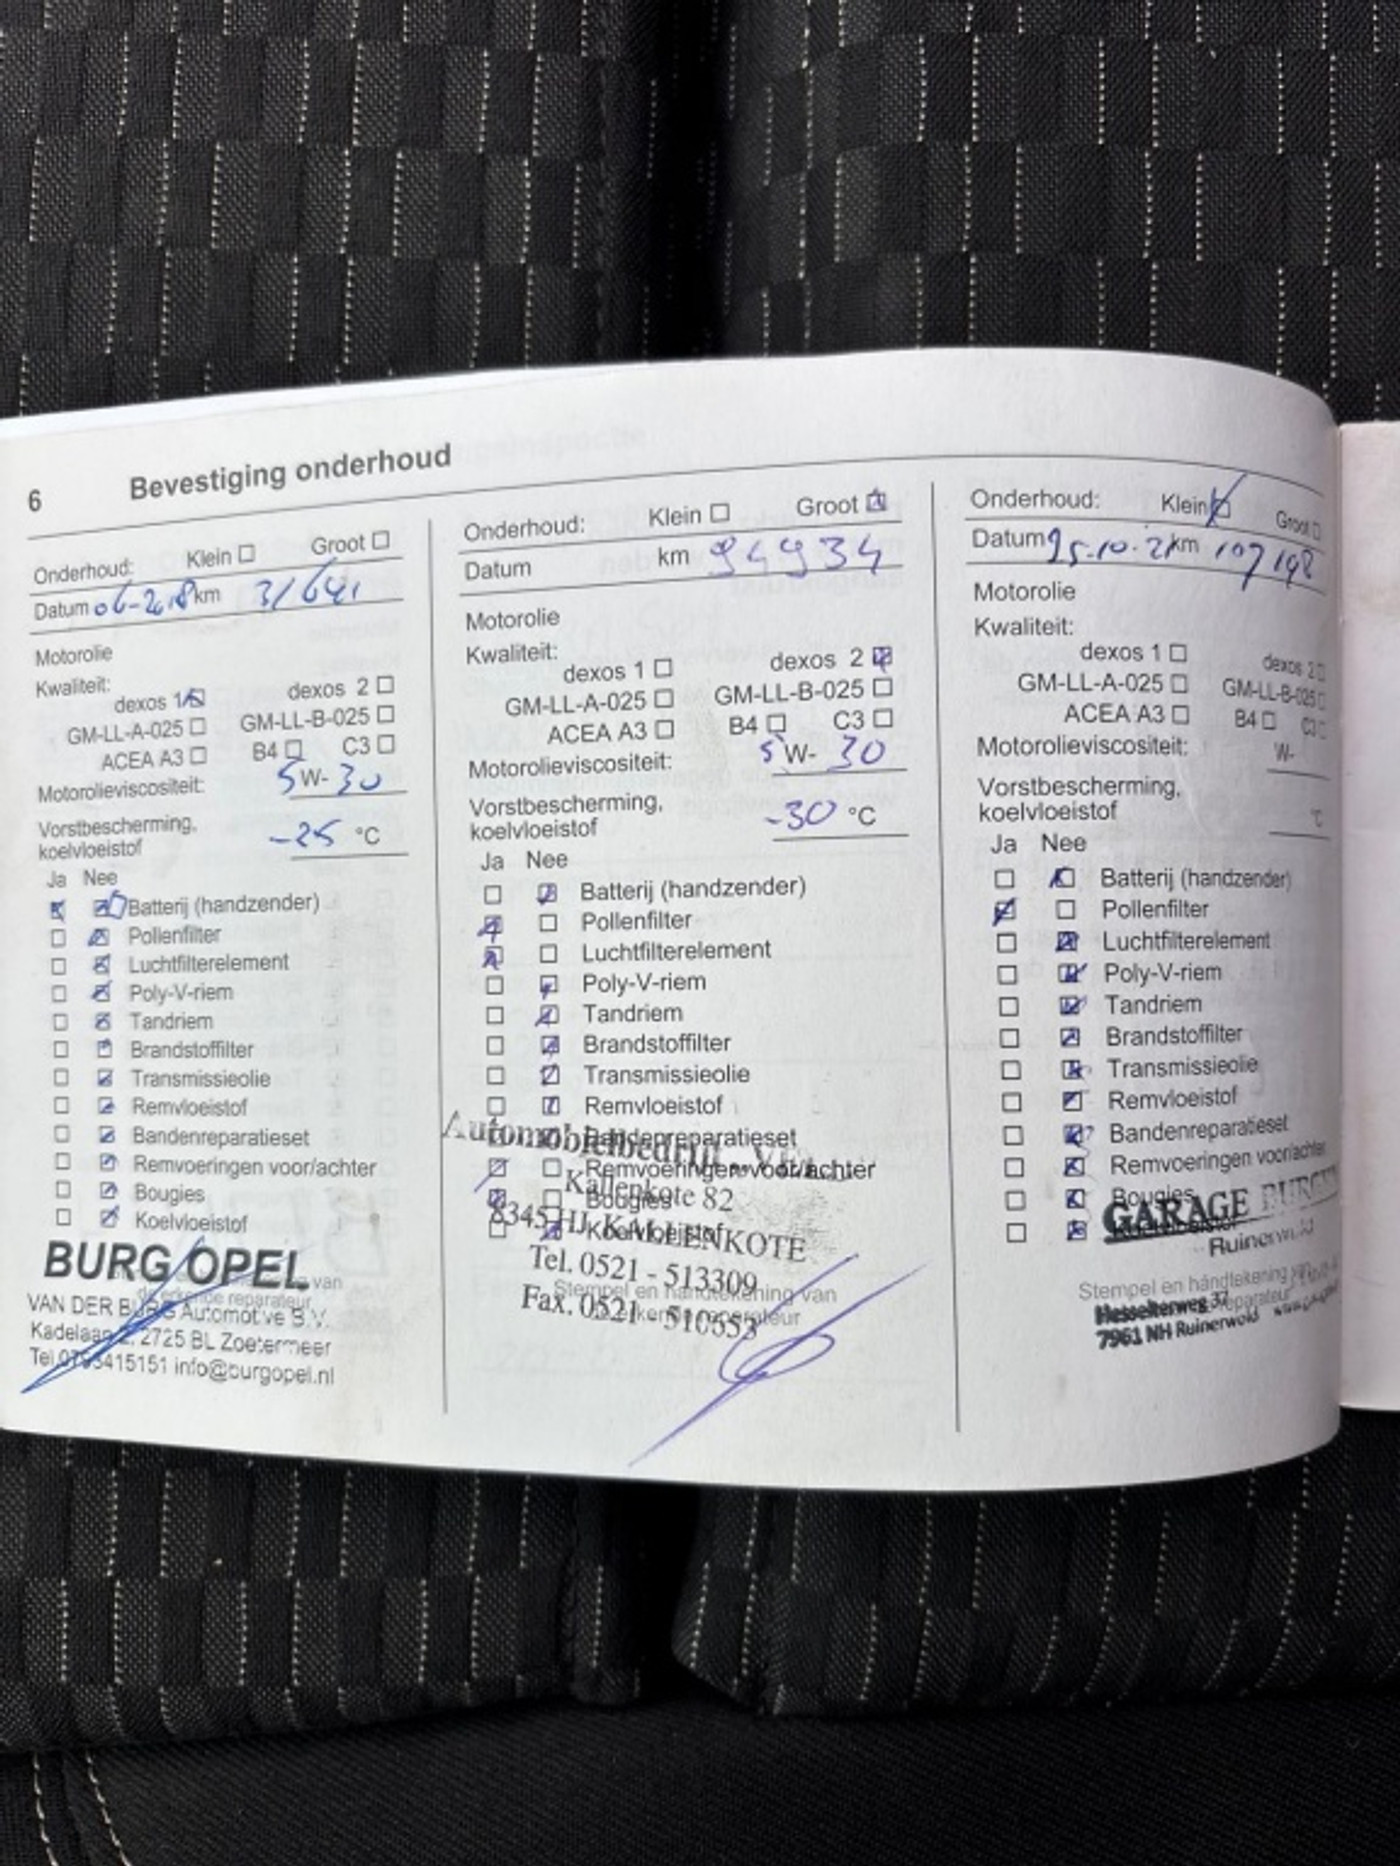 6 Bevestiging onderhoud
Onderhoud: Klein Groot
Datum 06-2018 km 31641
Motorolie
Kwaliteit:
dexos 1 dexos 2
GM-LL-A-025 GM-LL-B-025
ACEA A3 B4 C3
Motorolieviscositeit: 5 W- 30
Vorstbescherming,
koelvloeistof -25 °C
Ja Nee
Batterij (handzender)
Pollenfilter
Luchtfilterelement
Poly-V-riem
Tandriem
Brandstoffilter
Transmissieolie
Remvloeistof
Bandenreparatieset
Remvoeringen voor/achter
Bougies
Koelvloeistof
BURG OPEL
van
de erkende reparateur
VAN DER BURG Automotive B.V.
Kadelaan 2725 BL Zoetermeer
Tel 0793415151 info@burgopel.nl
Onderhoud: Klein Groot
Datum km 94934
Motorolie
Kwaliteit:
dexos 1 dexos 2
GM-LL-A-025 GM-LL-B-025
ACEA A3 B4 C3
Motorolieviscositeit: 5 W- 30
Vorstbescherming,
koelvloeistof -30 °C
Ja Nee
Batterij (handzender)
Pollenfilter
Luchtfilterelement
Poly-V-riem
Tandriem
Brandstoffilter
Transmissieolie
Remvloeistof
Bandenreparatieset
Automobielbedrijf
Remvoeringen voor/achter
Kallenkote 82
Bougies
8345 HJ KALLENKOTE
Koelvloeistof
Tel. 0521 - 513309
Stempel en handtekening van
erkende reparateur
Fax. 0521 - 510553
Onderhoud: Klein Groot
Datum 25.10.21 km 107198
Motorolie
Kwaliteit:
dexos 1 dexos 2
GM-LL-A-025 GM-LL-B-025
ACEA A3 B4 C3
Motorolieviscositeit: W-
Vorstbescherming,
koelvloeistof °C
Ja Nee
Batterij (handzender)
Pollenfilter
Luchtfilterelement
Poly-V-riem
Tandriem
Brandstoffilter
Transmissieolie
Remvloeistof
Bandenreparatieset
Remvoeringen voor/achter
Bougies
GARAGE
Koelvloeistof
Ruinerwold
Stempel en handtekening
reparateur
Hesselterweg 37
7961 NH Ruinerwold